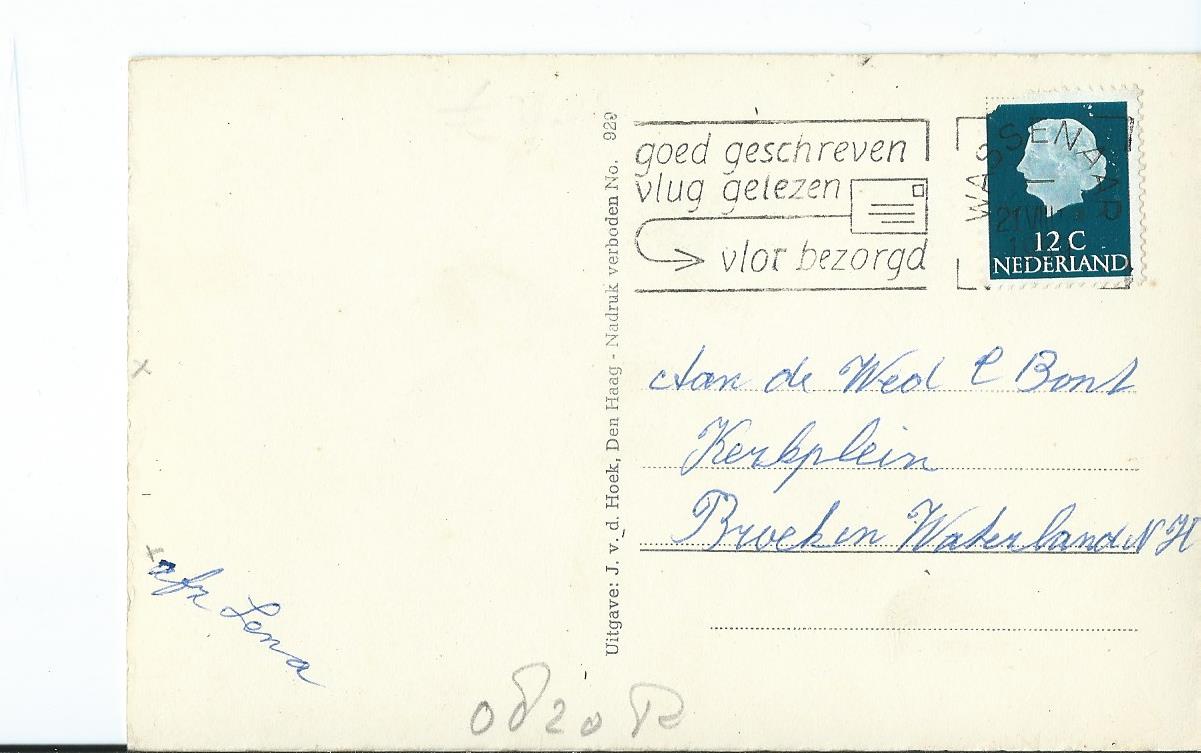 goed geschreven
vlug gelezen
vlot bezorgd
WASSENAAR
21 VIII
12 C
NEDERLAND
Uitgave: J. v. d. Hoek, Den Haag - Nadruk verboden No. 929
Aan de Wed C Bont
Kerkplein
Broek in Waterland N H
afz Lena